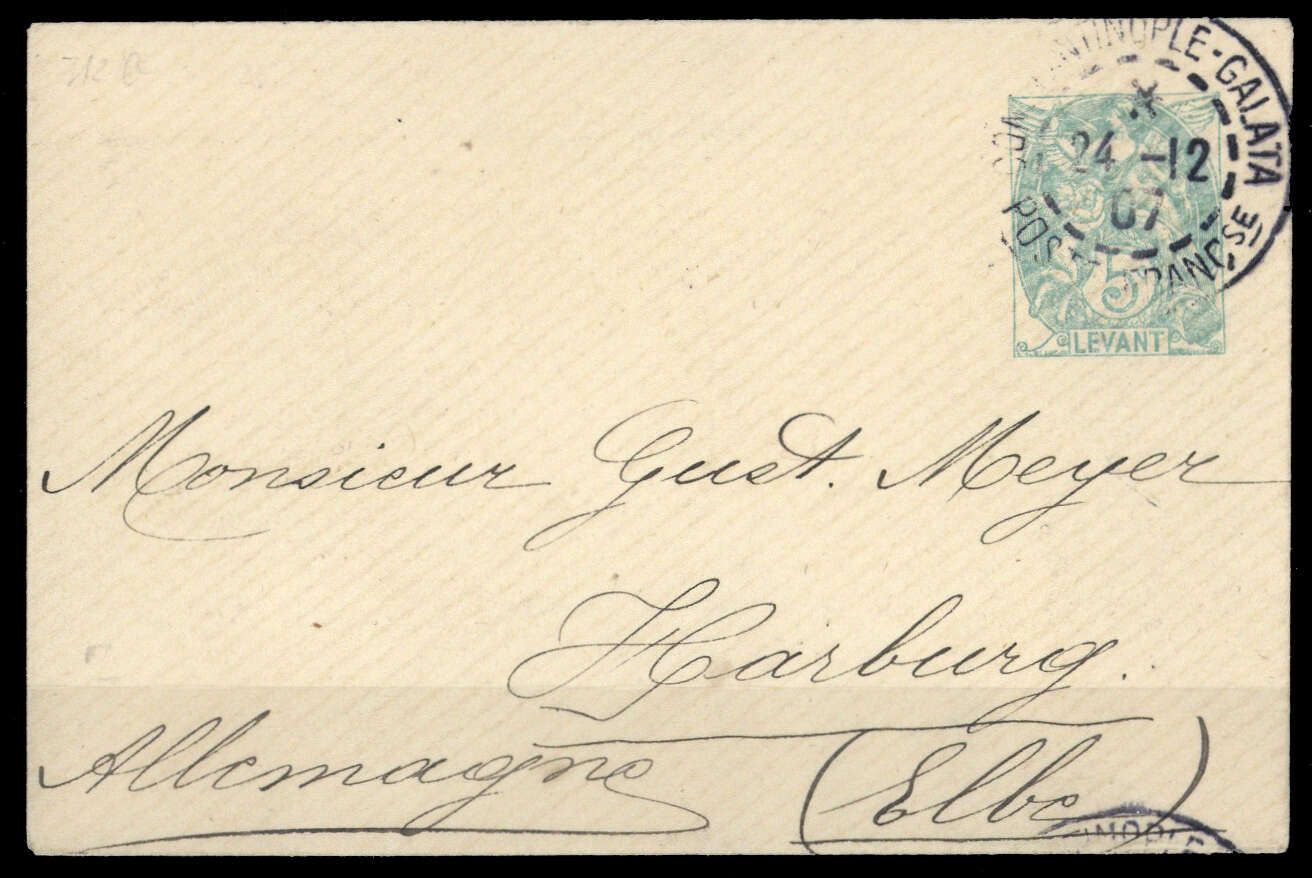 CON ANTINOPLE-GALATA
24 -12
07
POST FRANCSE
5
LEVANT
Monsieur Gust. Meyer
Harburg.
Allemagne (Elbe)
INOPLE